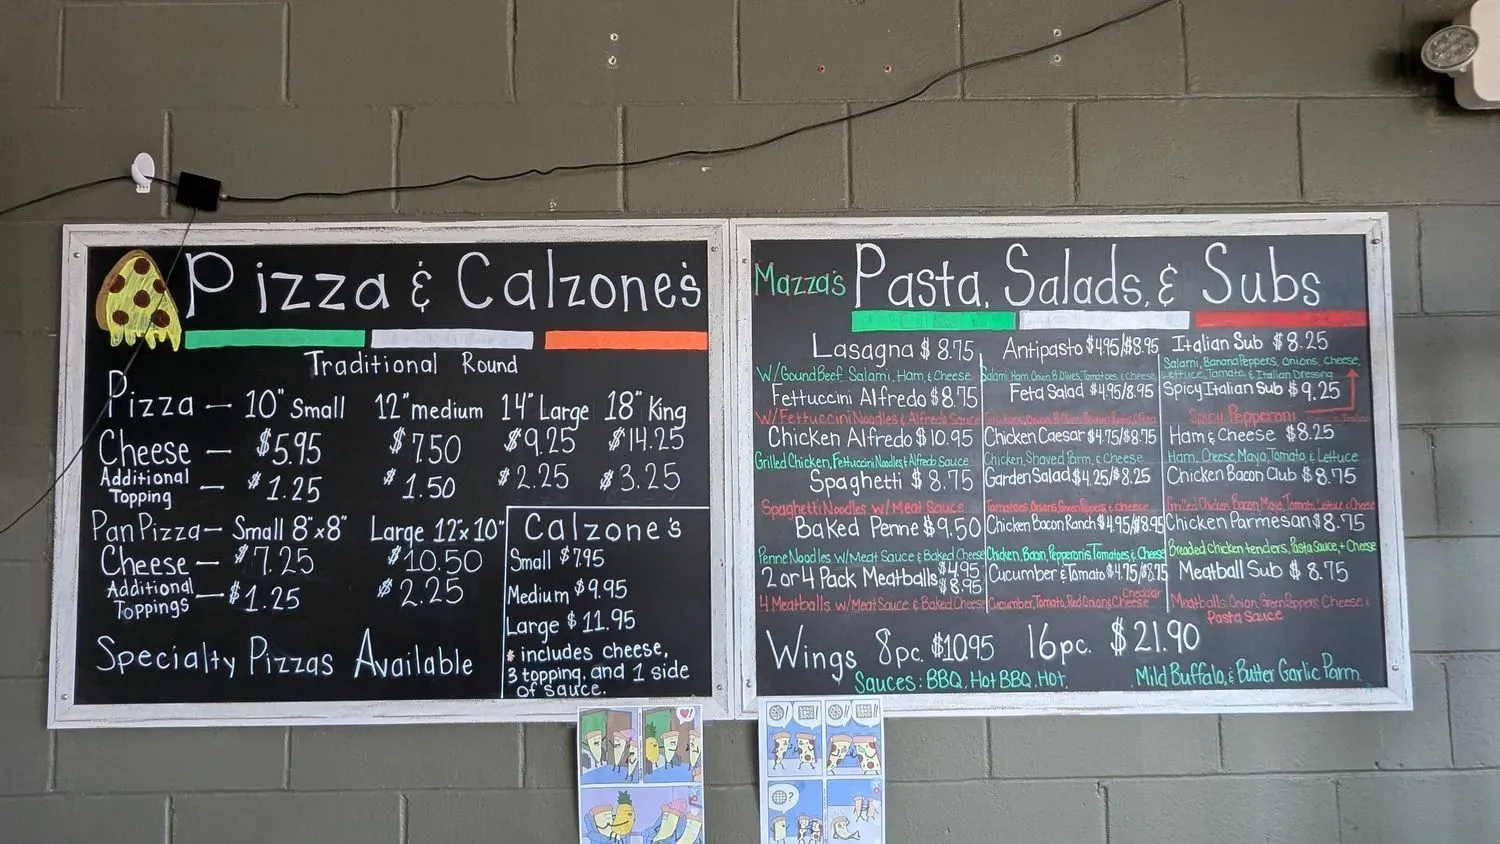 Pizza & Calzone's
Traditional Round
Pizza – 10" Small 12" medium 14" Large 18" King
Cheese – $5.95 $7.50 $9.25 $14.25
Additional Topping – $1.25 $1.50 $2.25 $3.25
Pan Pizza – Small 8"x8" Large 12"x10"
Cheese – $7.25 $10.50
Additional Toppings – $1.25 $2.25
Specialty Pizzas Available
Calzone's
Small $7.95
Medium $9.95
Large $11.95
* includes cheese,
3 topping, and 1 side
of sauce.
Mazza's Pasta, Salads, & Subs
Lasagna $8.75
W/Gound Beef, Salami, Ham, & Cheese
Fettuccini Alfredo $8.75
W/Fettuccini Noodles & Alfredo Sauce
Chicken Alfredo $10.95
Grilled Chicken, Fettuccini Noodles & Alfredo Sauce
Spaghetti $8.75
Spaghetti Noodles w/Meat Sauce
Baked Penne $9.50
Penne Noodles w/Meat Sauce & Baked Cheese
2 or 4 Pack Meatballs $4.95
$8.95
4 Meatballs w/Meat Sauce & Baked Cheese
Antipasto $4.95/$8.95
Salami, Ham, Onion, B.Olives, Tomatoes, & Cheese
Feta Salad $4.95/8.95
Chicken Caesar $4.75/$8.75
Chicken, Shaved Parm, & Cheese
Garden Salad $4.25/$8.25
Tomatoes, Onions, Green Peppers, & Cheese
Chicken Bacon Ranch $4.95/$8.95
Chicken, Bacon, Pepperonis, Tomatoes & Cheese
Cucumber & Tomato $4.75/$8.75
Cucumber, Tomato, Red Onion & Cheddar Cheese
Italian Sub $8.25
Salami, Banana Peppers, Onions, Cheese,
Lettuce, Tomato, & Italian Dressing
Spicy Italian Sub $9.25
Spicy Pepperoni
Ham & Cheese $8.25
Ham, Cheese, Mayo, Tomato, & Lettuce
Chicken Bacon Club $8.75
Grilled Chicken, Bacon, Mayo, Tomato, Lettuce & Cheese
Chicken Parmesan $8.75
Breaded chicken tenders, Pasta Sauce, & Cheese
Meatball Sub $8.75
Meatballs, Onion, Green Peppers, Cheese &
Pasta Sauce
Wings 8pc. $10.95 16pc. $21.90
Sauces: BBQ, Hot BBQ, Hot, Mild Buffalo, & Butter Garlic Parm.